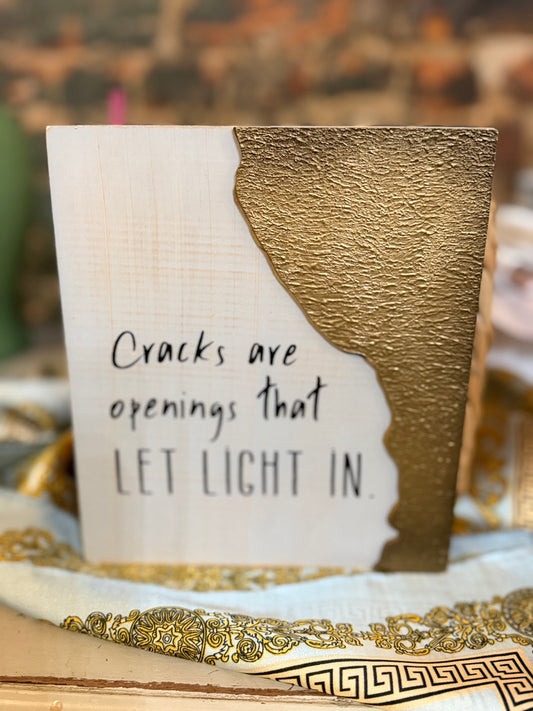 Cracks are
openings that
LET LIGHT IN.